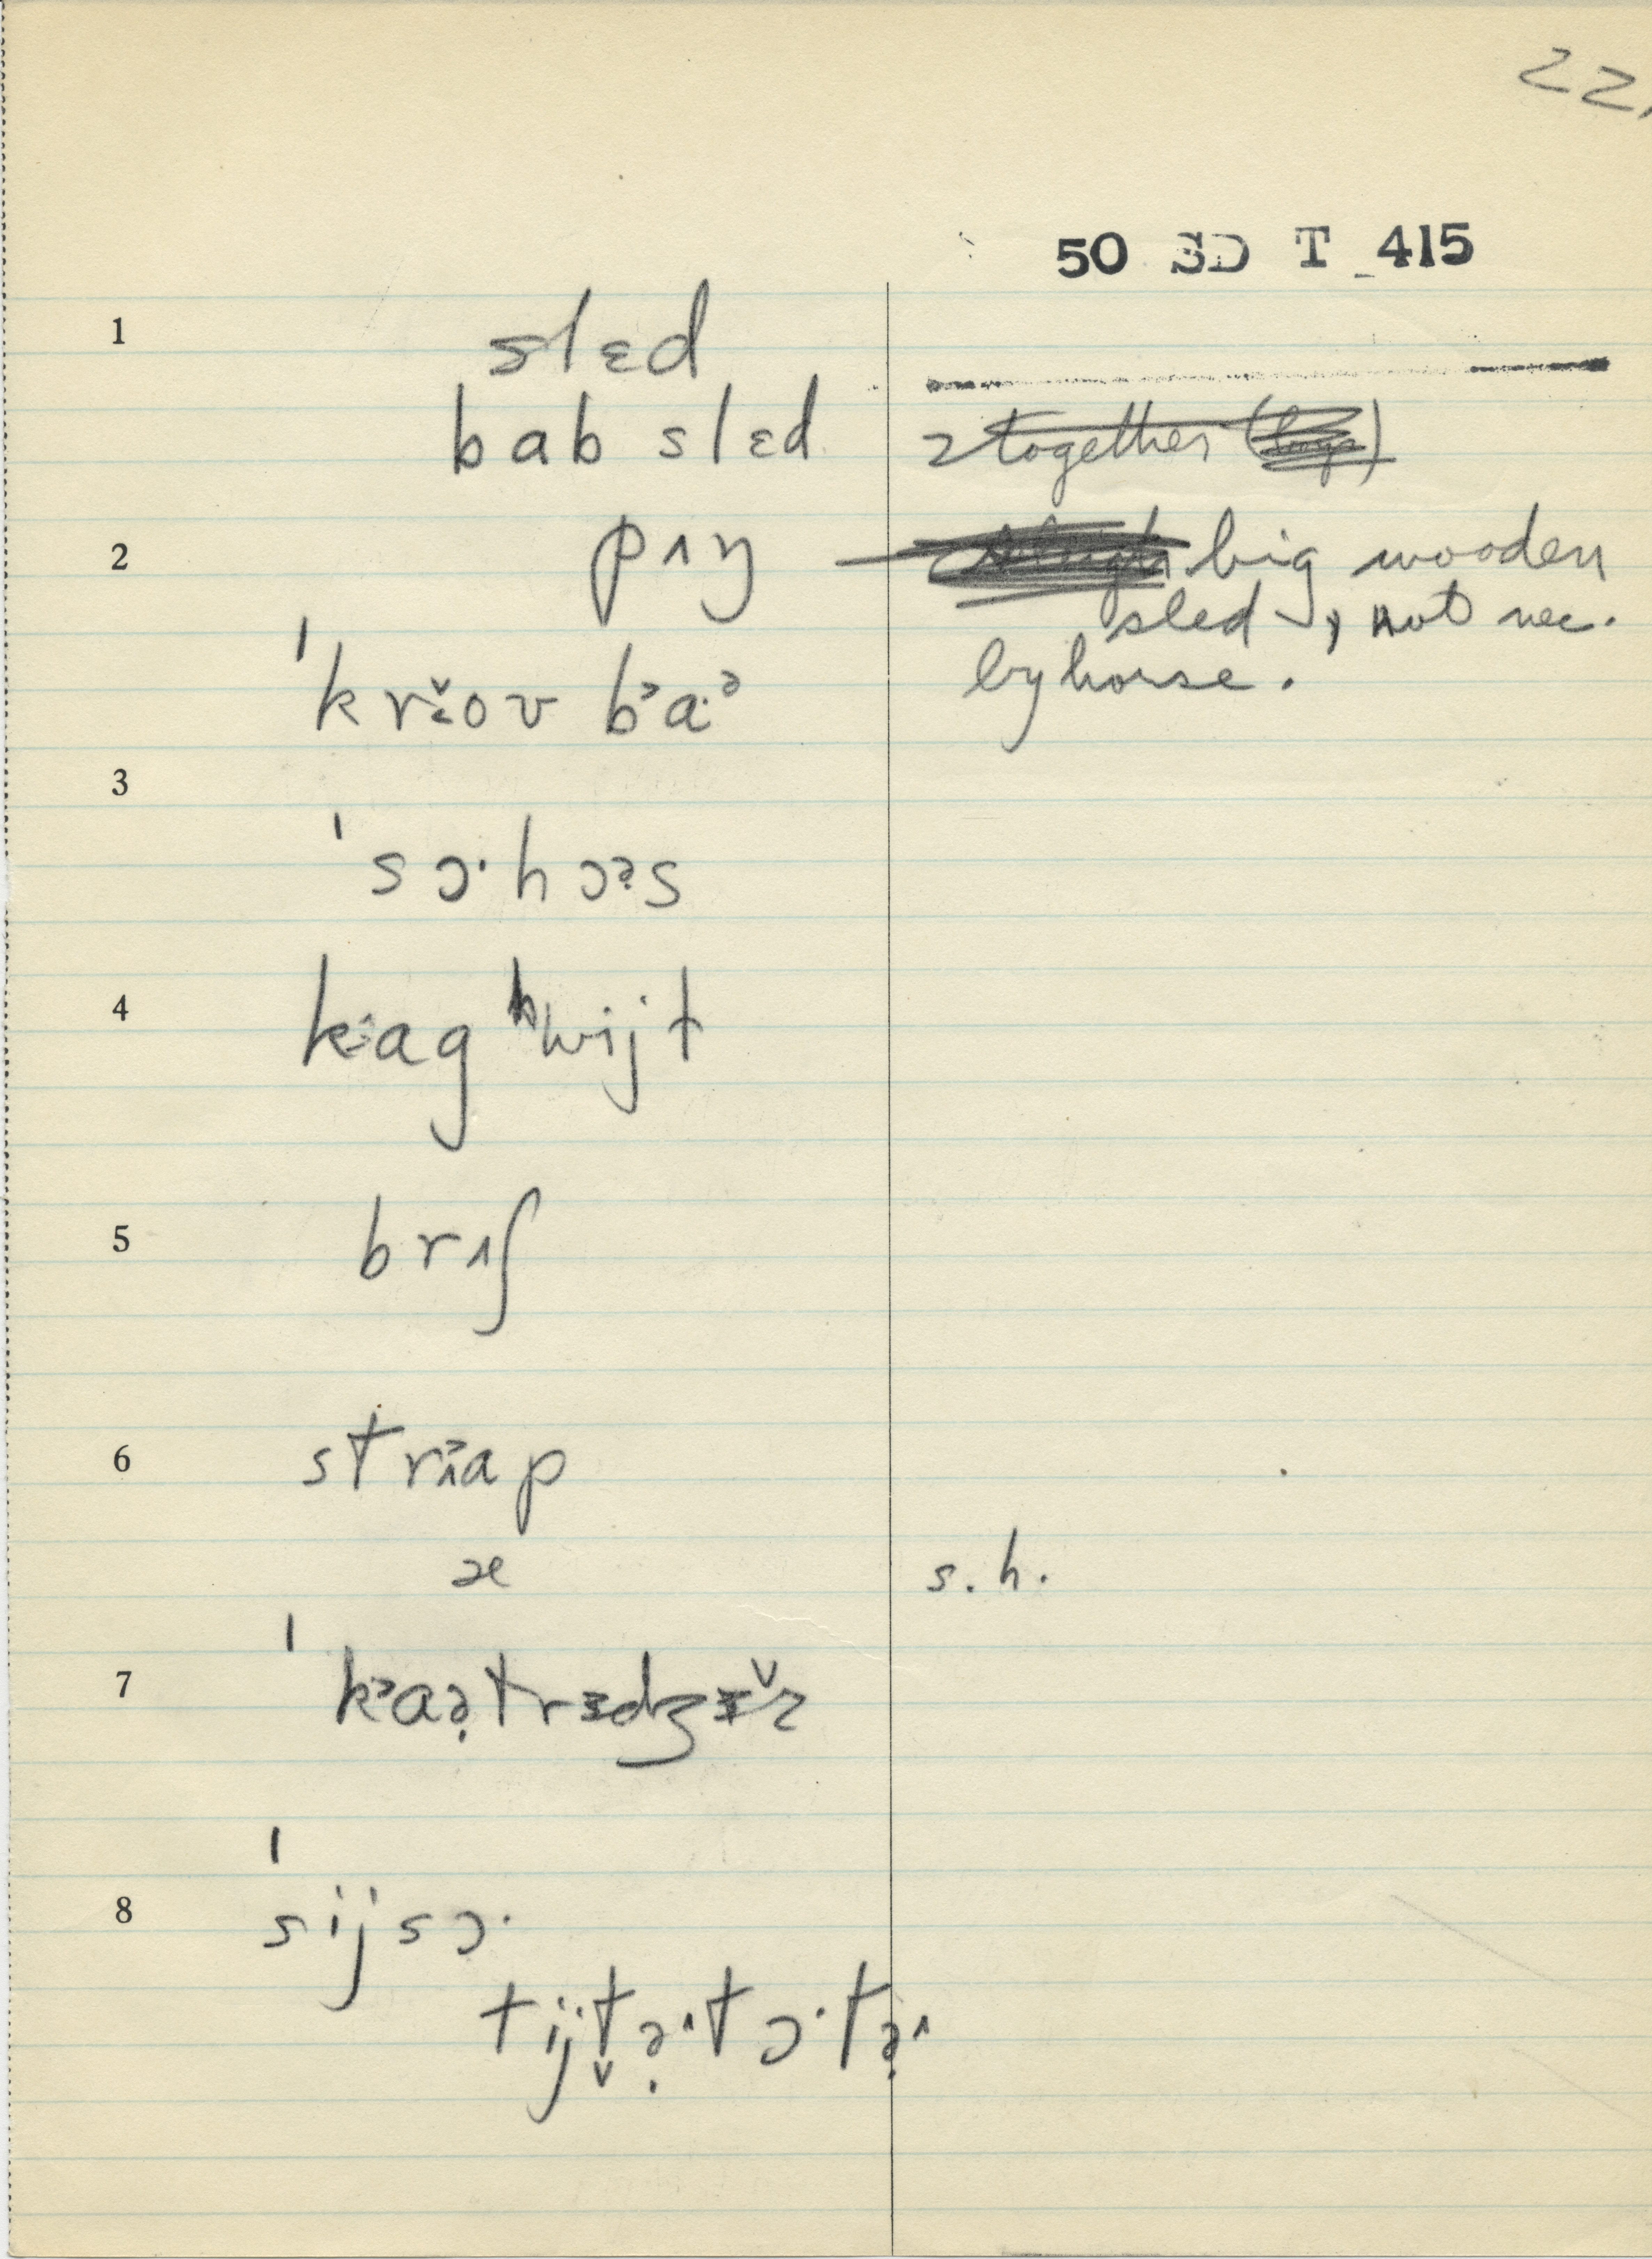 22.
50 SD T 415
1 slɛd
bab slɛd 2 together
2 pʌŋ big wooden
sled, not nec.
by horse.
ˈkrɛ̌ov bᵊa·ᵊ
3
ˈsɔ·hɔᵊs
4 kag ʰwijt
5 brʌʃ
6 strap
æ s.h.
7 ˈkᵊaə̣trɪdʒ
8 ˈsijsɔ·
tijt̬ə̣·tɔ·tə̣